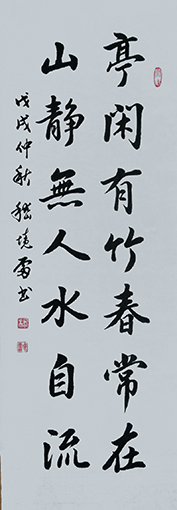 亭闲有竹春常在
山静無人水自流
戊戌仲秋 嵇境雷书